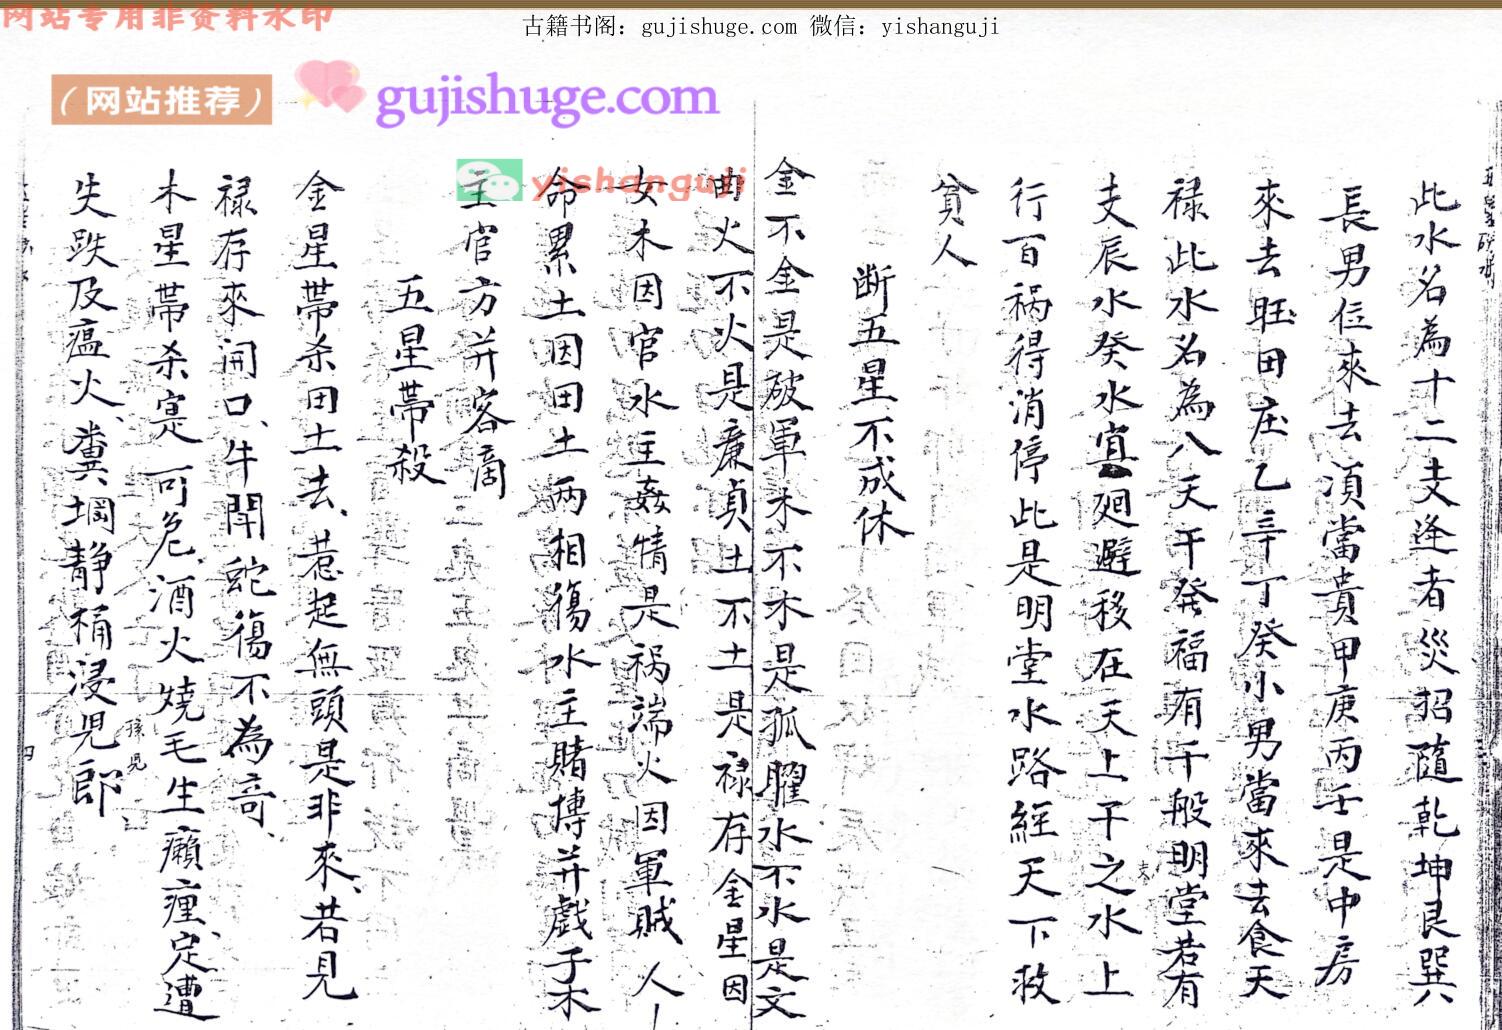 网站专用非资料水印
古籍书阁：gujishuge.com 微信：yishanguji
（网站推荐）
gujishuge.com
yishanguji
此水名為十二支逢者災招隨乾坤艮巽
長男位來去湏當貴甲庚丙壬是中房
來去旺田庄乙辛丁癸小男當來去食天
禄此水名為八天干發福有千般明堂若有
支辰水癸水宜廻避移在天上干之水上
支
行百禍得消停此是明堂水路經天下救
貧人
断五星不成休
金不金是破軍木不木是孤臞水不水是文
曲火不火是廉貞土不土是禄存金星因
女木因官水主姦情是禍端火因軍賊人
命累土因田土两相傷水主賭博并戲子木
主官方并客商
五星帶殺
金星帶杀田土去惹起無頭是非來若見
禄存來開口牛閗蛇傷不為竒
木星帶杀寔可危酒火燒毛生癩瘋定遭
失跌及瘟火糞堈靜桶浸児郎
孫児